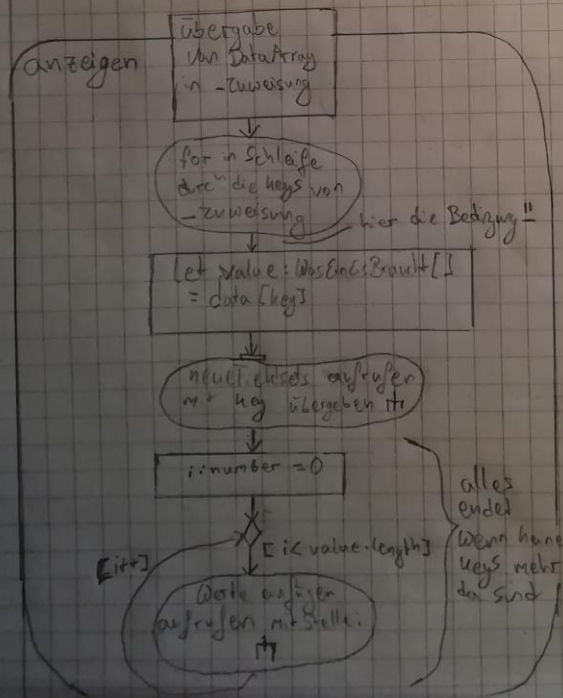 übergabe
von DataArray
in -zuweisung
anzeigen
for in Schleife
durch die keys von
-zuweisung
hier die Bedingung!!
let value: WasEinEisBraucht[]
= data[key]
aufrufen
mit key übergeben
i:number = 0
[i < value.length]
[i++]
Werte einfügen
aufrufen mit Stelle i
alles
endet
wenn keine
keys mehr
da sind